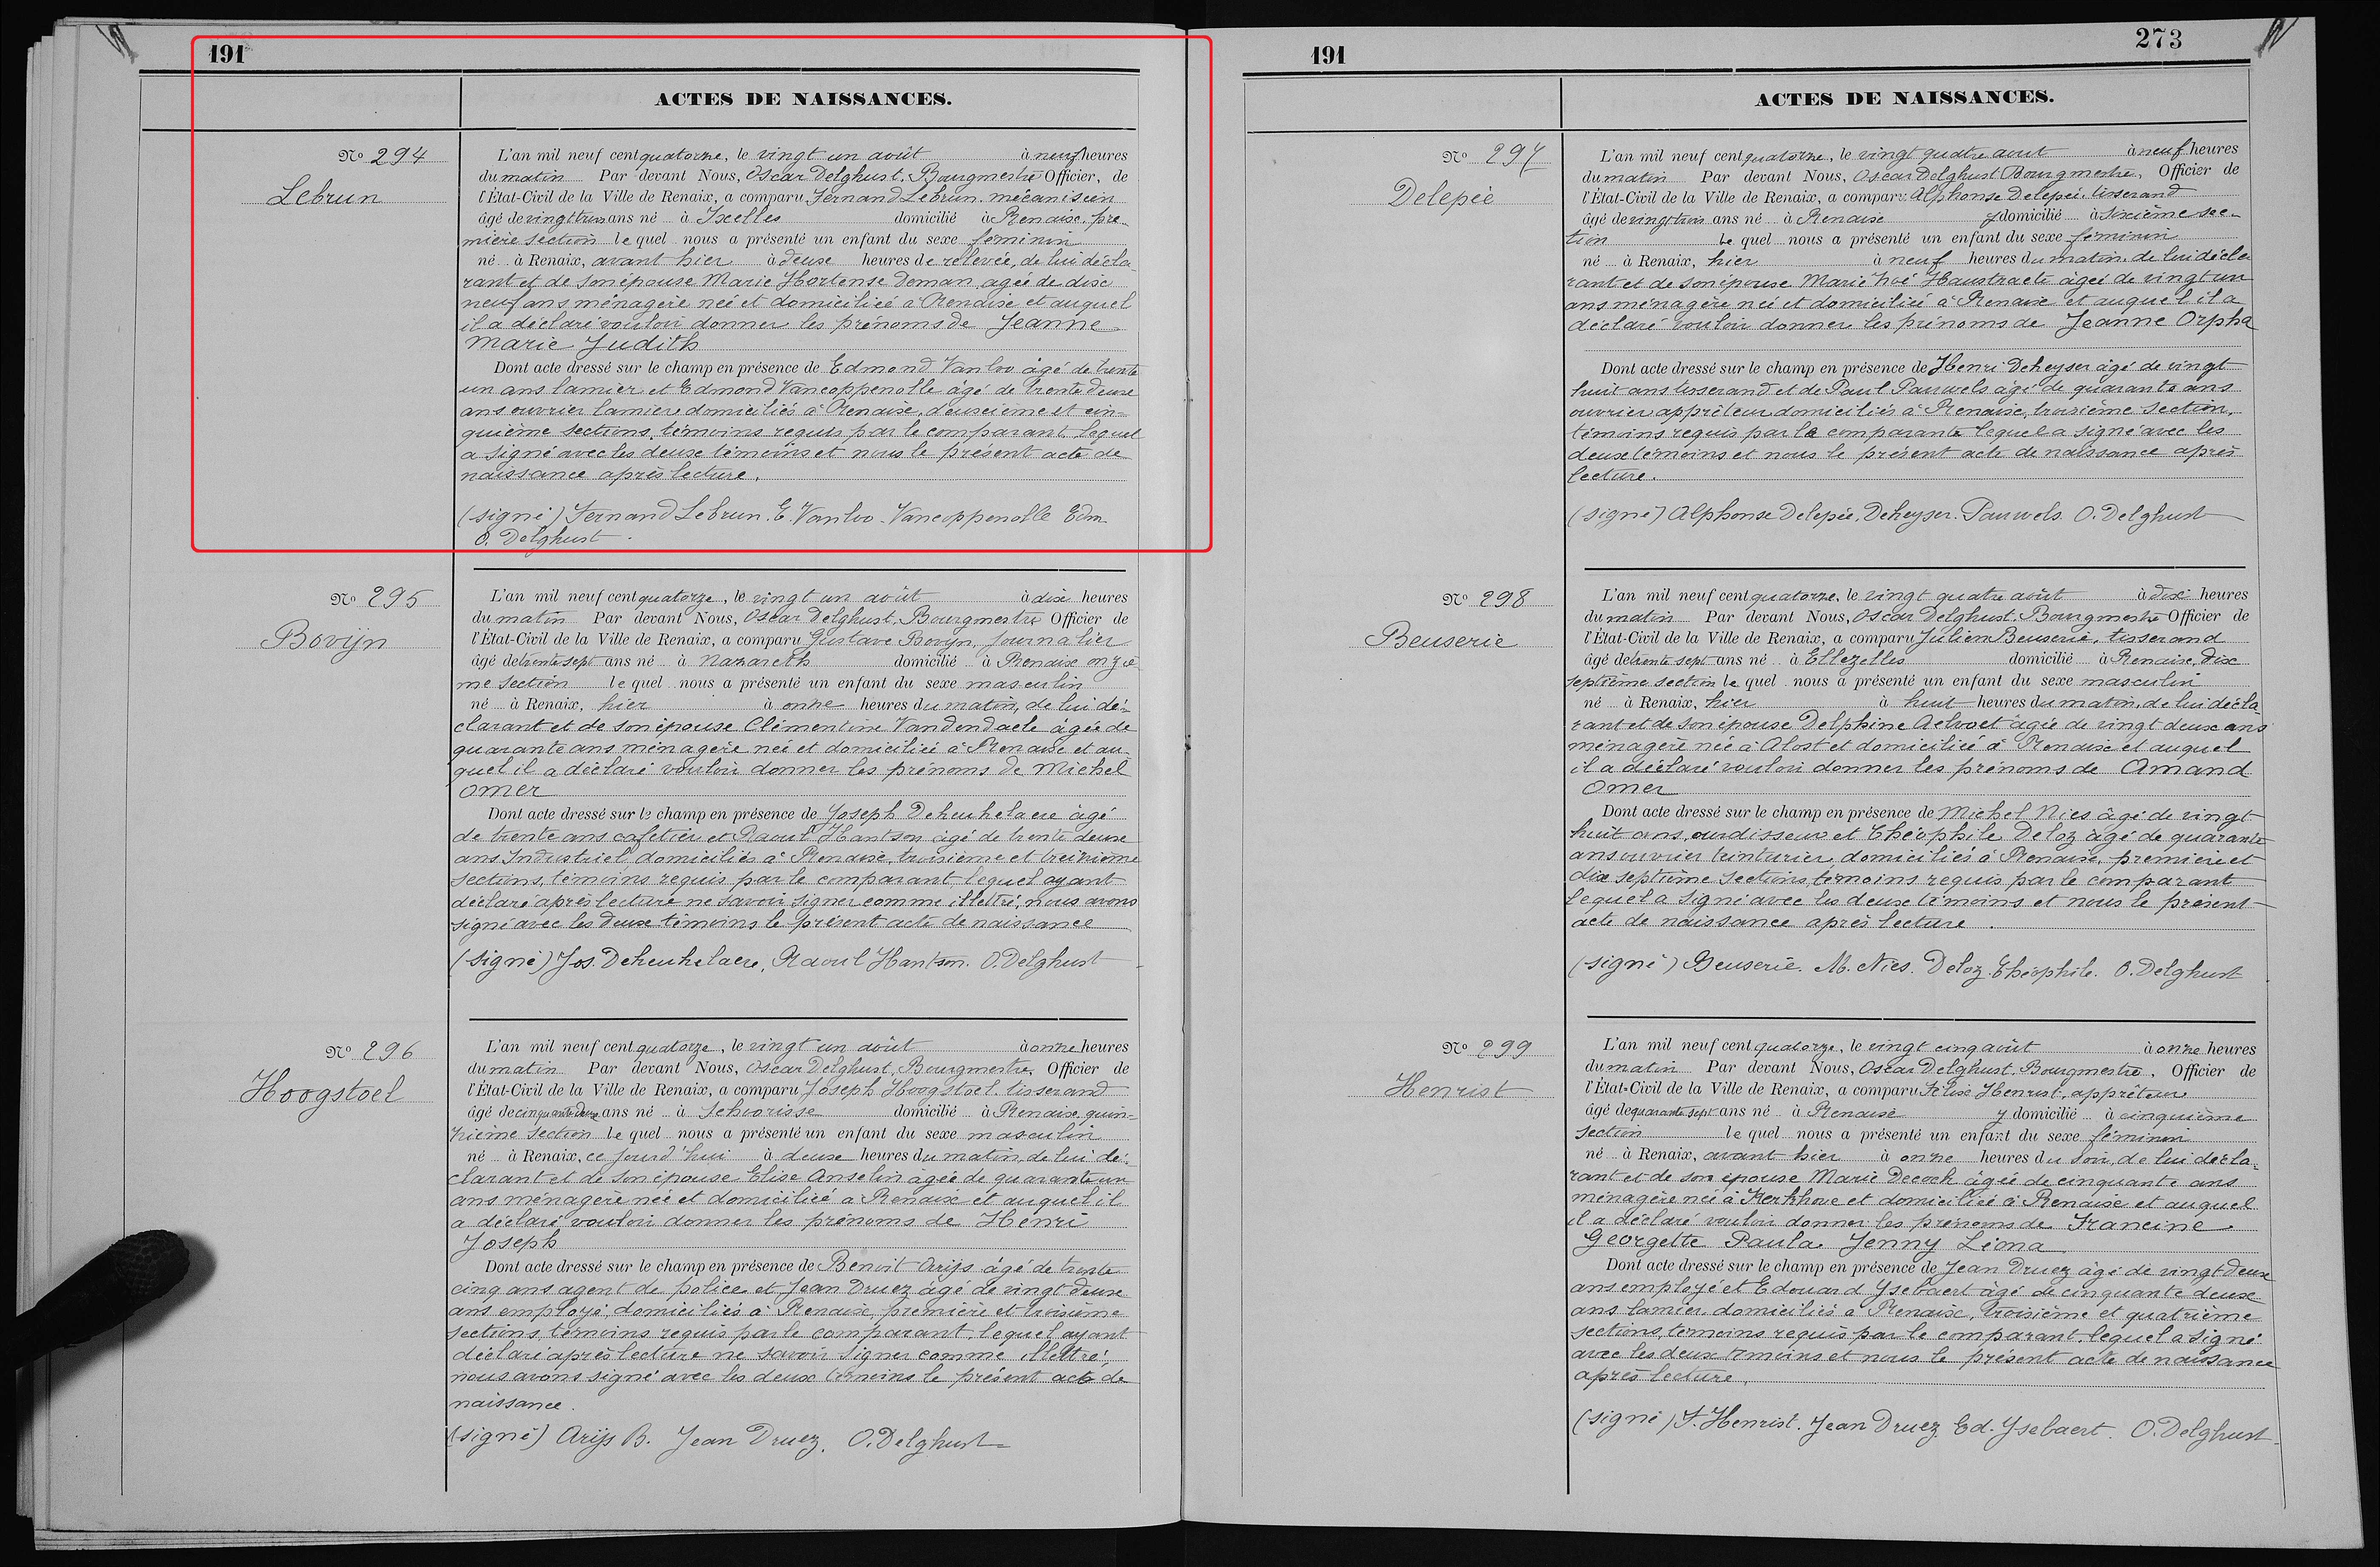 191
ACTES DE NAISSANCES.
No 294
Lebrun
L'an mil neuf cent quatorze, le vingt un août à neuf heures
du matin Par devant Nous, Oscar Delghust, Bourgmestre Officier, de
l'État-Civil de la Ville de Renaix, a comparu Fernand Lebrun, mécanicien
âgé de vingt trois ans né à Ixelles domicilié à Renaix, pre-
mière section lequel nous a présenté un enfant du sexe féminin
né à Renaix, avant hier à deux heures de relevée, de lui décla-
rant et de son épouse Marie Hortense Doman, agée de dix
neuf ans ménagère née et domiciliée à Renaix et auquel
il a déclaré vouloir donner les prénoms de Jeanne
Marie Judith
Dont acte dressé sur le champ en présence de Edmond Vanloo âgé de trente
un ans lamier et Edmond Vancoppenolle âgé de trente deux
ans ouvrier lamier domiciliés à Renaix, deuxième et cin-
quième sections, témoins requis par le comparant lequel
a signé avec les deux témoins et nous le présent acte de
naissance après lecture.
(signé) Fernand Lebrun. E. Vanloo. Vancoppenolle Edm.
O. Delghust.
No 295
Bovijn
L'an mil neuf cent quatorze, le vingt un août à dix heures
du matin Par devant Nous, Oscar Delghust, Bourgmestre Officier de
l'État-Civil de la Ville de Renaix, a comparu Gustave Bovijn, journalier
âgé de trente sept ans né à Nazareth domicilié à Renaix onziè
me section lequel nous a présenté un enfant du sexe masculin
né à Renaix, hier à onze heures du matin, de lui dé-
clarant et de son épouse Clémentine Vandendaele âgée de
quarante ans ménagère née et domiciliée à Renaix et au-
quel il a déclaré vouloir donner les prénoms de Michel
Omer
Dont acte dressé sur le champ en présence de Joseph Deheuhelaere âgé
de trente ans cafetier et Raoul Hantson âgé de trente deux
ans Industriel, domiciliés à Renaix, troisième et treizième
sections, témoins requis par le comparant, lequel ayant
déclaré après lecture ne savoir signer comme illettré, nous avons
signé avec les deux témoins le présent acte de naissance
(signé) Jos. Deheuhelaere, Raoul Hantson. O. Delghust
No 296
Hoogstoel
L'an mil neuf cent quatorze, le vingt un août à onze heures
du matin Par devant Nous, Oscar Delghust, Bourgmestre, Officier de
l'État-Civil de la Ville de Renaix, a comparu Joseph Hoogstoel, tisserand
âgé de cinquante deux ans né à Schoorisse domicilié à Renaix, quin-
zième section lequel nous a présenté un enfant du sexe masculin
né à Renaix, ce jourd'hui à deux heures du matin, de lui dé-
clarant et de son épouse Elise Anselin âgée de quarante un
ans ménagère née et domiciliée à Renaix et auquel il
a déclaré vouloir donner les prénoms de Henri
Joseph
Dont acte dressé sur le champ en présence de Benoit Arijs âgé de trente
cinq ans agent de police et Jean Druez âgé de vingt deux
ans employé, domiciliés à Renaix, première et troisième
sections, témoins requis par le comparant, lequel ayant
déclaré après lecture ne savoir signer comme illettré,
nous avons signé avec les deux témoins le présent acte de
naissance.
(signé) Arijs B. Jean Druez. O. Delghust
191
273
ACTES DE NAISSANCES.
No 297
Delepée
L'an mil neuf cent quatorze, le vingt quatre août à neuf heures
du matin Par devant Nous, Oscar Delghust Bourgmestre, Officier de
l'État-Civil de la Ville de Renaix, a comparu Alphonse Delepée, tisserand
âgé de vingt trois ans né à Renaix y domicilié à sixième sec-
tion lequel nous a présenté un enfant du sexe féminin
né à Renaix, hier à neuf heures du matin, de lui décla
rant et de son épouse Marie Zoé Haustraete âgée de vingt un
ans ménagère née et domiciliée à Renaix et auquel il a
déclaré vouloir donner les prénoms de Jeanne Orpha
Dont acte dressé sur le champ en présence de Henri Deheyser âgé de vingt
huit ans tisserand et de Paul Pauwels âgé de quarante ans
ouvrier apprêteur domiciliés à Renaix, troisième section,
témoins requis par le comparante lequel a signé avec les
deux témoins et nous le présent acte de naissance après
lecture.
(signé) Alphonse Delepée, Deheyser. Pauwels. O. Delghust
No 298
Beuserie
L'an mil neuf cent quatorze, le vingt quatre août à dix heures
du matin Par devant Nous, Oscar Delghust. Bourgmestre Officier de
l'État-Civil de la Ville de Renaix, a comparu Julien Beuserie, tisserand
âgé de trente sept ans né à Ellezelles domicilié à Renaix, dix
septième section lequel nous a présenté un enfant du sexe masculin
né à Renaix, hier à huit heures du matin, de lui décla-
rant et de son épouse Delphine Aelvoet âgée de vingt deux ans
ménagère née à Alost et domiciliée à Renaix et auquel
il a déclaré vouloir donner les prénoms de Amand
Omer
Dont acte dressé sur le champ en présence de Michel Nies âgé de vingt
huit ans, ourdisseur et Théophile Deloz âgé de quarante
ans ouvrier teinturier, domiciliés à Renaix, première et
dix septième sections, témoins requis par le comparant
lequel a signé avec les deux témoins et nous le présent
acte de naissance après lecture.
(signé) Beuserie. M. Nies. Deloz Théophile. O. Delghust
No 299
Henrist
L'an mil neuf cent quatorze, le vingt cinq août à onze heures
du matin Par devant Nous, Oscar Delghust. Bourgmestre, Officier de
l'État-Civil de la Ville de Renaix, a comparu Félix Henrist, apprêteur
âgé de quarante sept ans né à Renaix y domicilié à cinquième
section lequel nous a présenté un enfant du sexe féminin
né à Renaix, avant hier à onze heures du soir, de lui décla-
rant et de son épouse Marie Decock âgée de cinquante ans
ménagère née à Kerkhove et domiciliée à Renaix et auquel
il a déclaré vouloir donner les prénoms de Francine
Georgette Paula Jenny Léona
Dont acte dressé sur le champ en présence de Jean Druez âgé de vingt deux
ans employé et Edouard Ysebaert âgé de cinquante deux
ans lamier, domiciliés à Renaix, troisième et quatrième
sections, témoins requis par le comparant, lequel a signé
avec les deux témoins et nous le présent acte de naissance
après lecture.
(signé) F. Henrist. Jean Druez. Ed. Ysebaert. O. Delghust